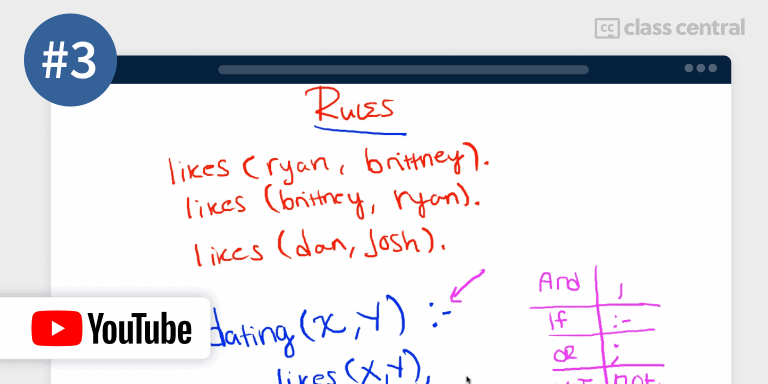 #3
cc class central
Rules
likes (ryan, brittney).
likes (brittney, ryan).
likes (dan, Josh).
dating (X, Y) :-
likes (X, Y),
And ,
If :-
OR ;
not
YouTube